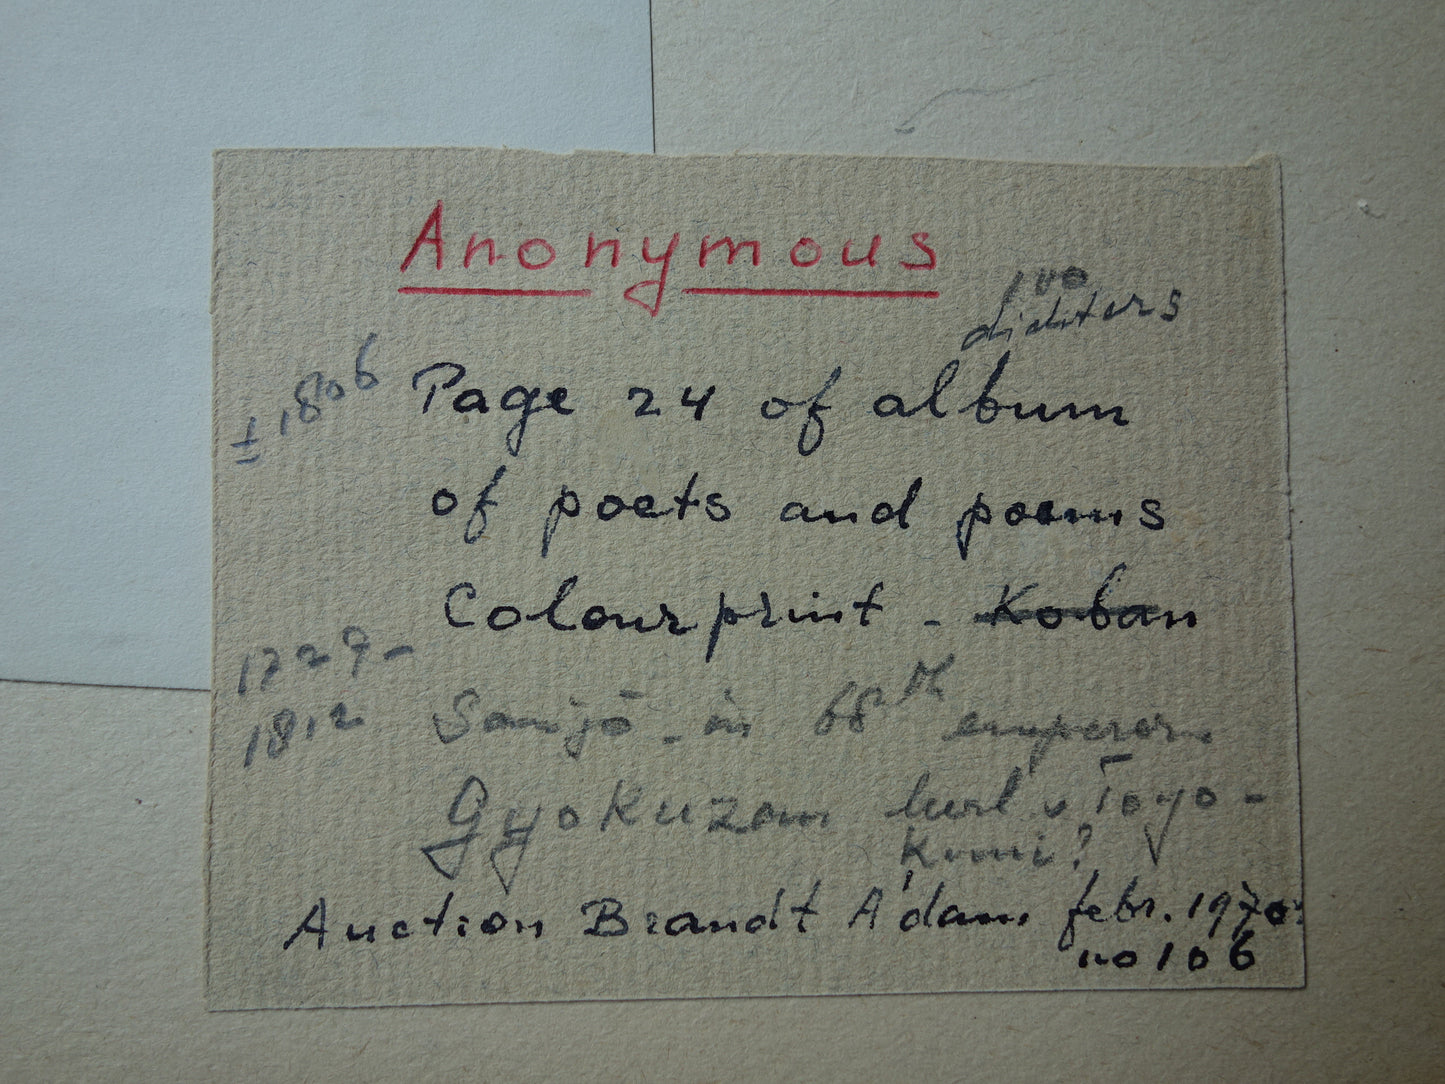 Anonymous
100
dichters
± 1806
Page 24 of album
of poets and poems
Colourprint - Koban
1727-
1812
Sanijō - in 68th emperor
Gyokuzan leerl v Toyo-
Kuni?
Auction Brandt A'dam febr. 1970
no 106